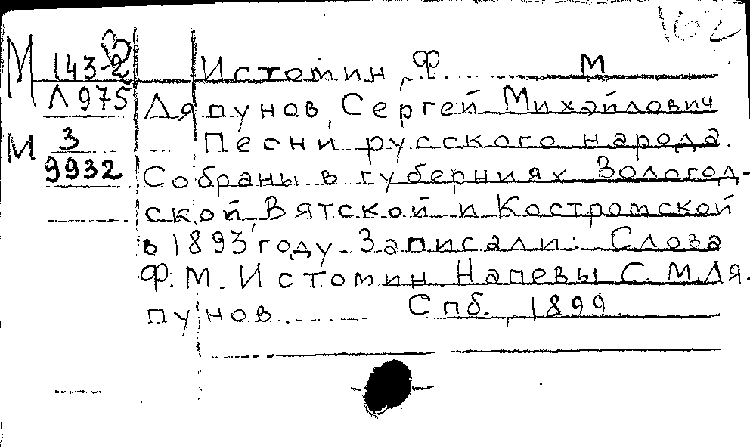 162
М 143-2 В Истомин, Ф. М
Л 975 Ляпунов, Сергей Михайлович
М 3 Песни русского народа.
9932 Собраны в губерниях Вологод-
ской, Вятской и Костромской
в 1893 году. Записали: Слова
Ф. М. Истомин Напевы С. М. Ля.
пунов. Спб., 1899